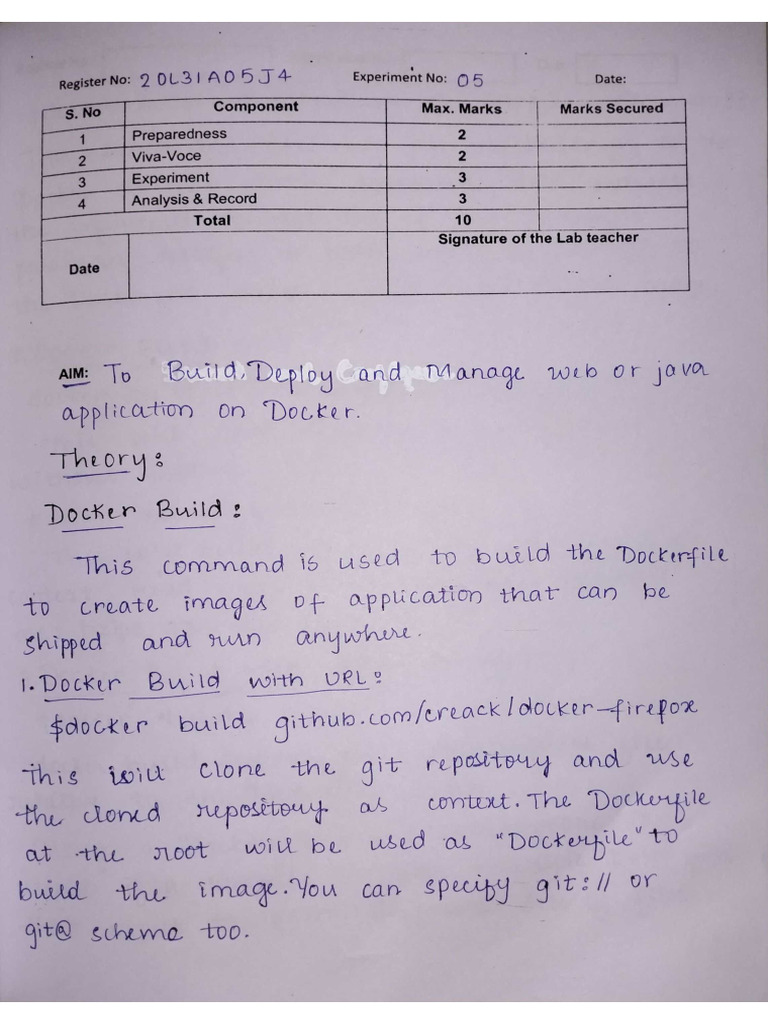 Register No: 20L31A05J4 Experiment No: 05 Date:
S. No Component Max. Marks Marks Secured
1 Preparedness 2
2 Viva-Voce 2
3 Experiment 3
4 Analysis & Record 3
Total 10
Date Signature of the Lab teacher
AIM: To Build, Deploy and Manage web or java
application on Docker.
Theory:
Docker Build:
This command is used to build the Dockerfile
to create images of application that can be
shipped and run anywhere.
1. Docker Build with URL:
$docker build github.com/creack/docker-firefox
This will clone the git repository and use
the cloned repository as context. The Dockerfile
at the root will be used as "Dockerfile" to
build the image. You can specify git:// or
git@ scheme too.